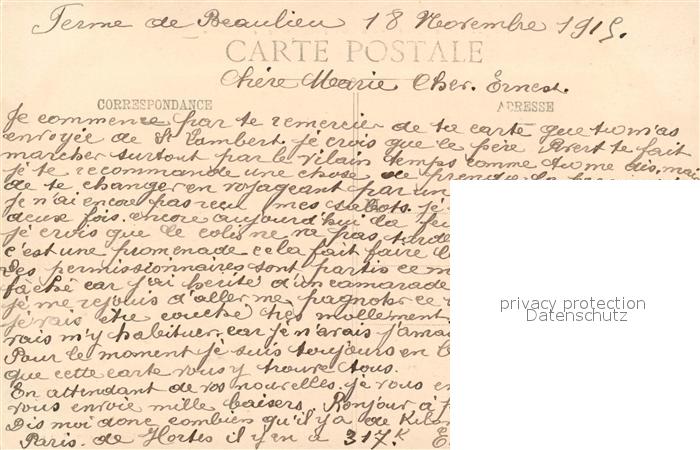 Ferme de Beaulieu 18 Novembre 1915.
CARTE POSTALE
Chère Marie Cher. Ernest.
CORRESPONDANCE
ADRESSE
Je commence par te remercier de ta carte que tu m'as
envoyée de St Lambert. je crois que le père te fait
marcher surtout par le vilain temps comme tu me dis, mais
je te recommande une chose de prendre
de te changer en voyageant par un
je n'ai encore pas reçu mes sabots. je
deux fois. encore aujourd'hui la
je crois que le colis ne pas
c'est une promenade cela fait faire
Des permissionnaires sont partis ce
fâché car j'ai hérité d'un camarade
je me rejouis d'aller me pagnoter ce
je vais etre couché très mollement
vais m'y habituer car je n'avais
Pour le moment je suis toujours en
que cette carte vous y trouve tous.
En attendant de vos nouvelles. je vous
vous envoie mille baisers. Bonjour à
Dis moi donc combien qu'il y a de
Paris. de Hortes il y en a 317.K
privacy protection
Datenschutz